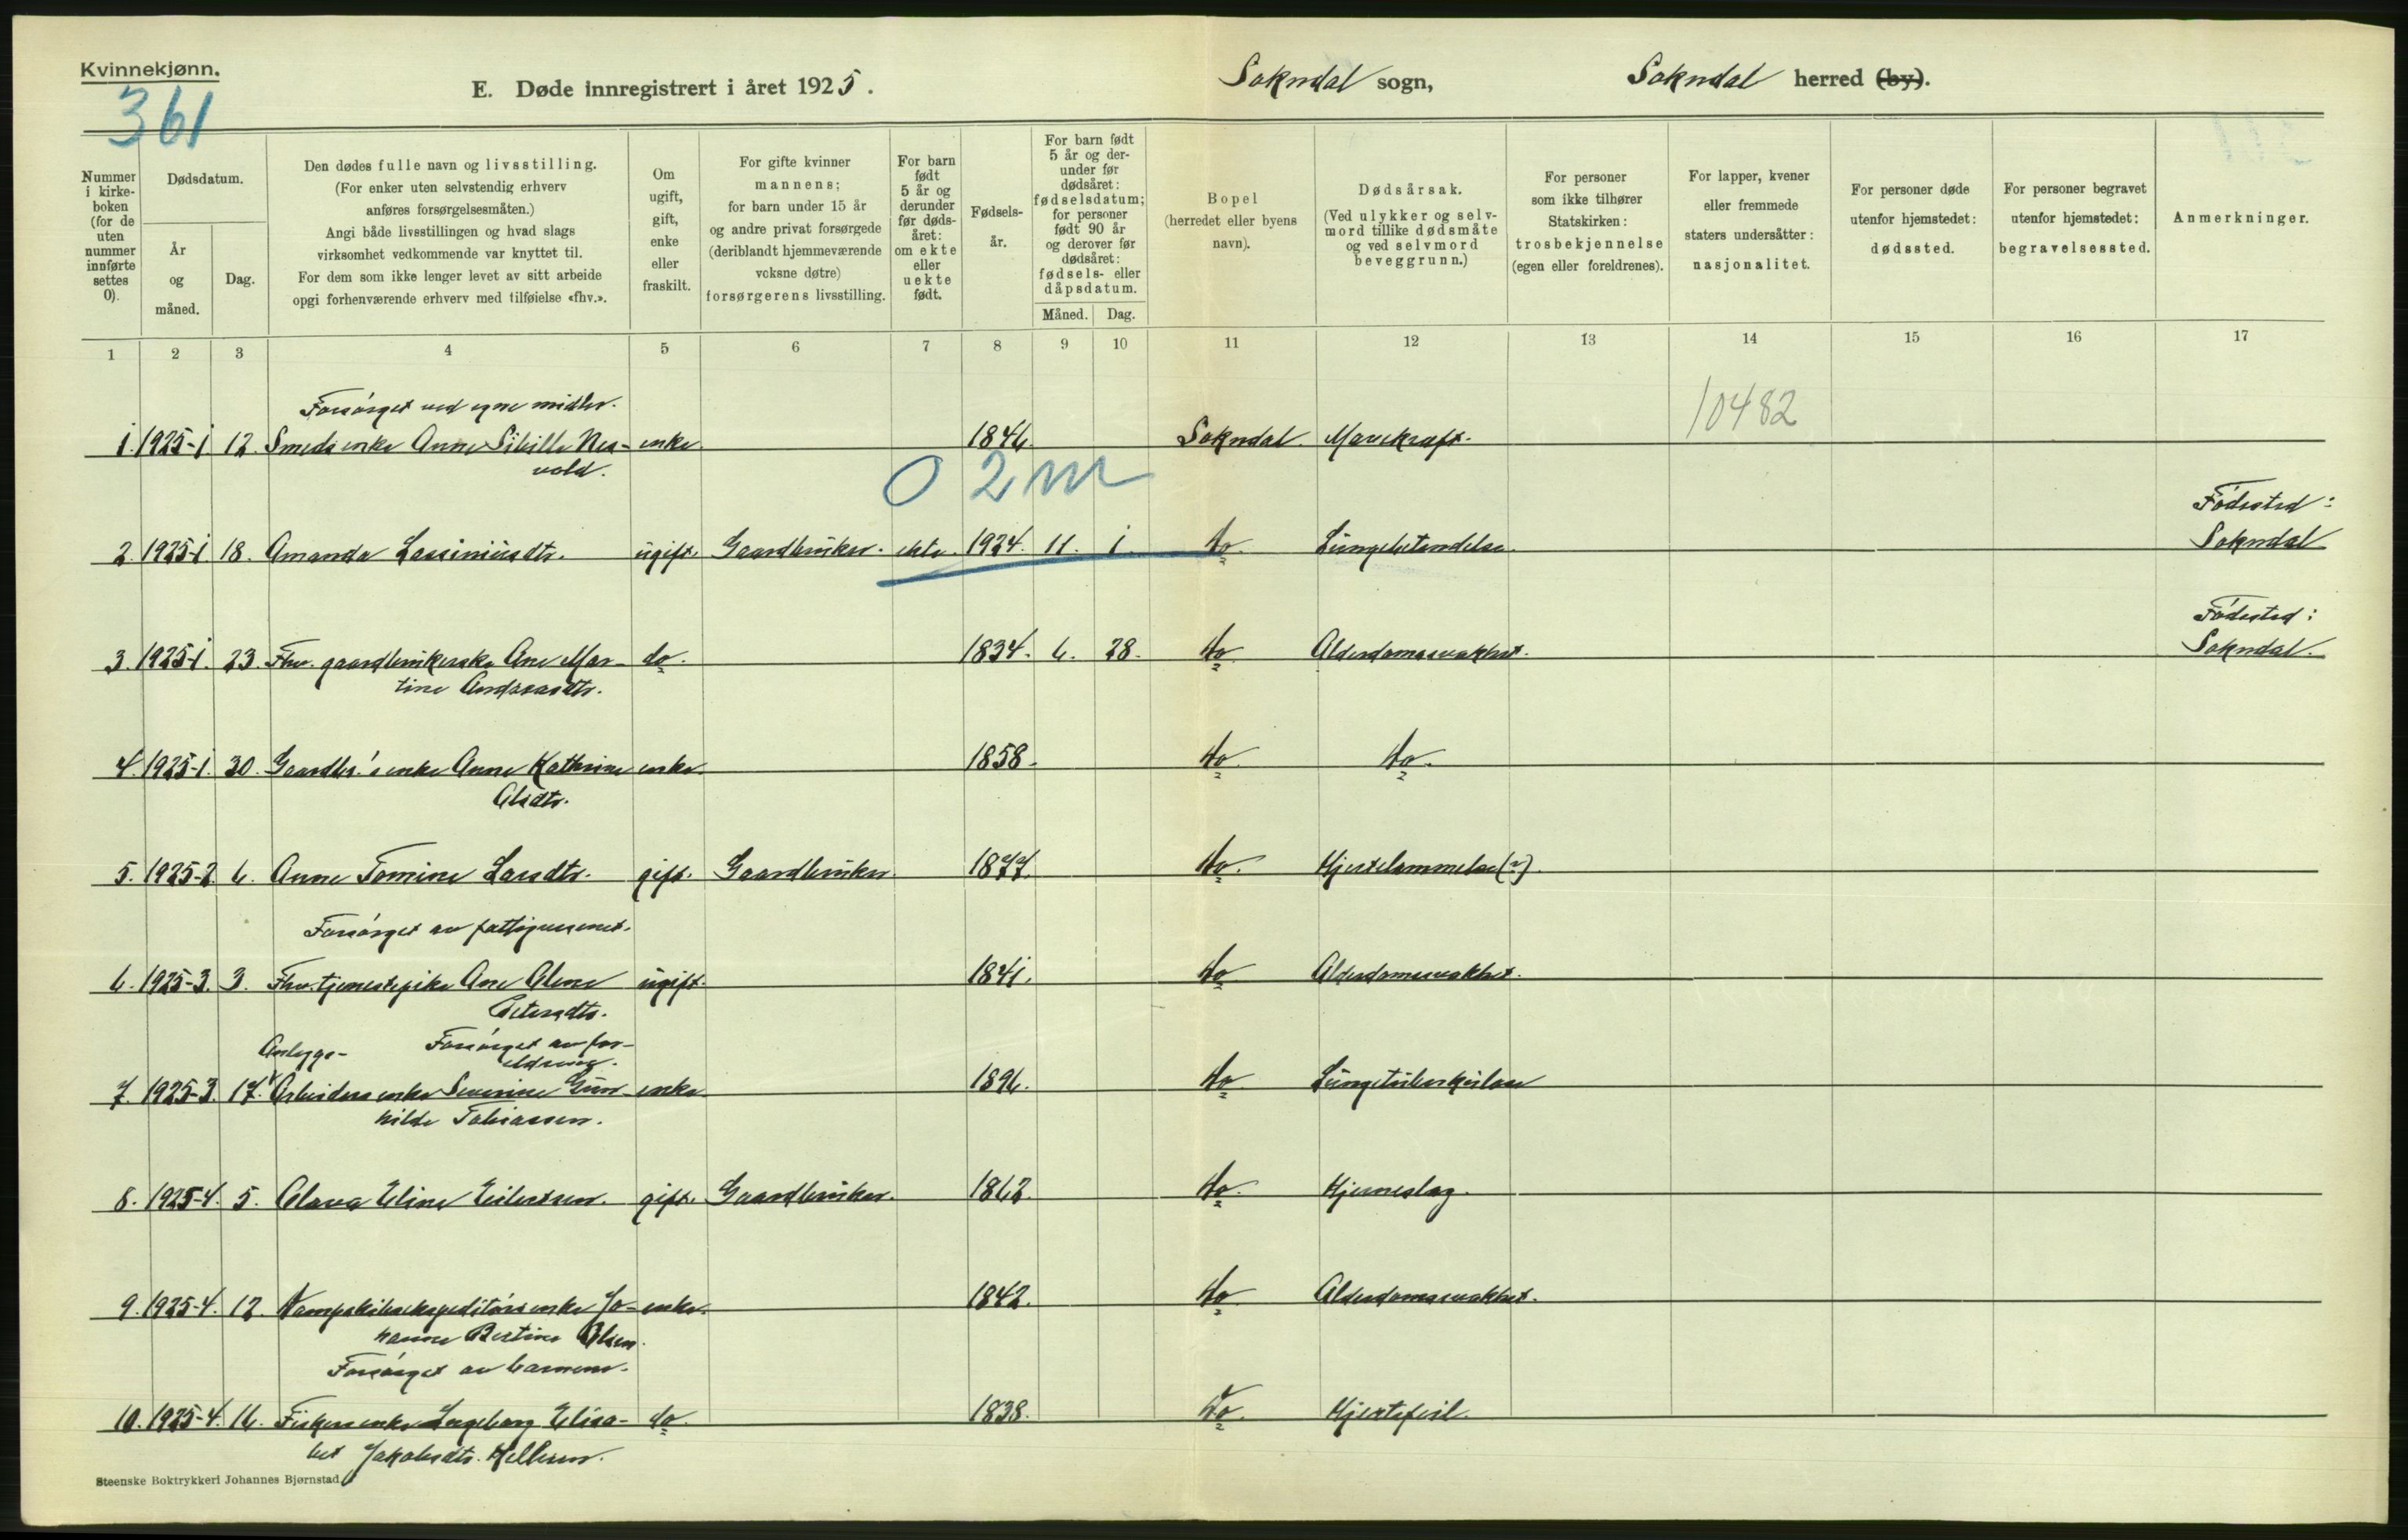 Kvinnekjønn.
361
E. Døde innregistrert i året 1925.
Sokndal sogn,
Sokndal herred (by).
Nummer i kirkeboken (for de uten nummer innførte settes 0).
Dødsdatum.
År og måned.
Dag.
Den dødes fulle navn og livsstilling.
(For enker uten selvstendig erhverv
anføres forsørgelsesmåten.)
Angi både livsstillingen og hvad slags
virksomhet vedkommende var knyttet til.
For dem som ikke lenger levet av sitt arbeide
opgi forhenværende erhverv med tilføielse «fhv.».
Om ugift, gift, enke eller fraskilt.
For gifte kvinner
mannens;
for barn under 15 år
og andre privat forsørgede
(deriblandt hjemmeværende
voksne døtre)
forsørgerens livsstilling.
For barn født 5 år og derunder før dødsåret: om ekte eller uekte født.
Fødselsår.
For barn født 5 år og derunder før dødsåret: fødselsdatum; for personer født 90 år og derover før dødsåret: fødsels- eller dåpsdatum.
Måned. Dag.
Bopel
(herredet eller byens
navn).
Dødsårsak.
(Ved ulykker og selvmord tillike dødsmåte
og ved selvmord
beveggrunn.)
For personer
som ikke tilhører
Statskirken:
trosbekjennelse
(egen eller foreldrenes).
For lapper, kvener
eller fremmede
staters undersåtter:
nasjonalitet.
For personer døde
utenfor hjemstedet:
dødssted.
For personer begravet
utenfor hjemstedet:
begravelsessted.
Anmerkninger.
1 2 3 4 5 6 7 8 9 10 11 12 13 14 15 16 17
Forsørget ved egne midler.
10482
1. 1925-1 12. Smeds enke Anne Sibille Nes- enke. 1846. Sokndal Mavekræft.
vold.
0 2 m
Fødested:
2. 1925-1. 18. Amanda Lassiniusdtr. ugift. Gaardbruker. ekte. 1924. 11. 1. do. Lungebetendelse. Sokndal
Fødested:
3. 1925-1. 23. Fhv. gaardbrukerske Ane Mar- do. 1834. 6. 28. do. Alderdomssvakhet. Sokndal.
tine Andreasdtr.
4. 1925-1. 30. Gaardbr.'s enke Anne Kathrine enke. 1858. do. do.
Olsdtr.
5. 1925-2. 6. Anne Tomine Larsdtr. gift. Gaardbruker 1877. do. Hjertelammelse(?).
Forsørget av fattigvesenet.
6. 1925-3. 3. Fhv. tjenestepike Ane Olene ugift. 1841. do. Alderdomssvakhet.
Petersdtr.
Anleggs- Forsørget av for-
eldrene.
7. 1925-3. 17. Arbeiders enke Severine Gun- enke. 1896. do. Lungetuberkulose
hilde Tobiassen.
8. 1925-4. 5. Olava Eline Eilertsen. gift. Gaardbruker. 1862. do. Hjerneslag.
9. 1925-4. 12. Dampskibsekspeditørs enke Jo- enke. 1842. do. Alderdomssvakhet.
hanne Bertine Olsen.
Forsørget av barnene.
10. 1925-4. 16. Fiskers enke Ingeborg Elisa- do. 1838. do. Hjertefeil.
bet Jakobsdtr. Helleren.
Steenske Boktrykkeri Johannes Bjørnstad.